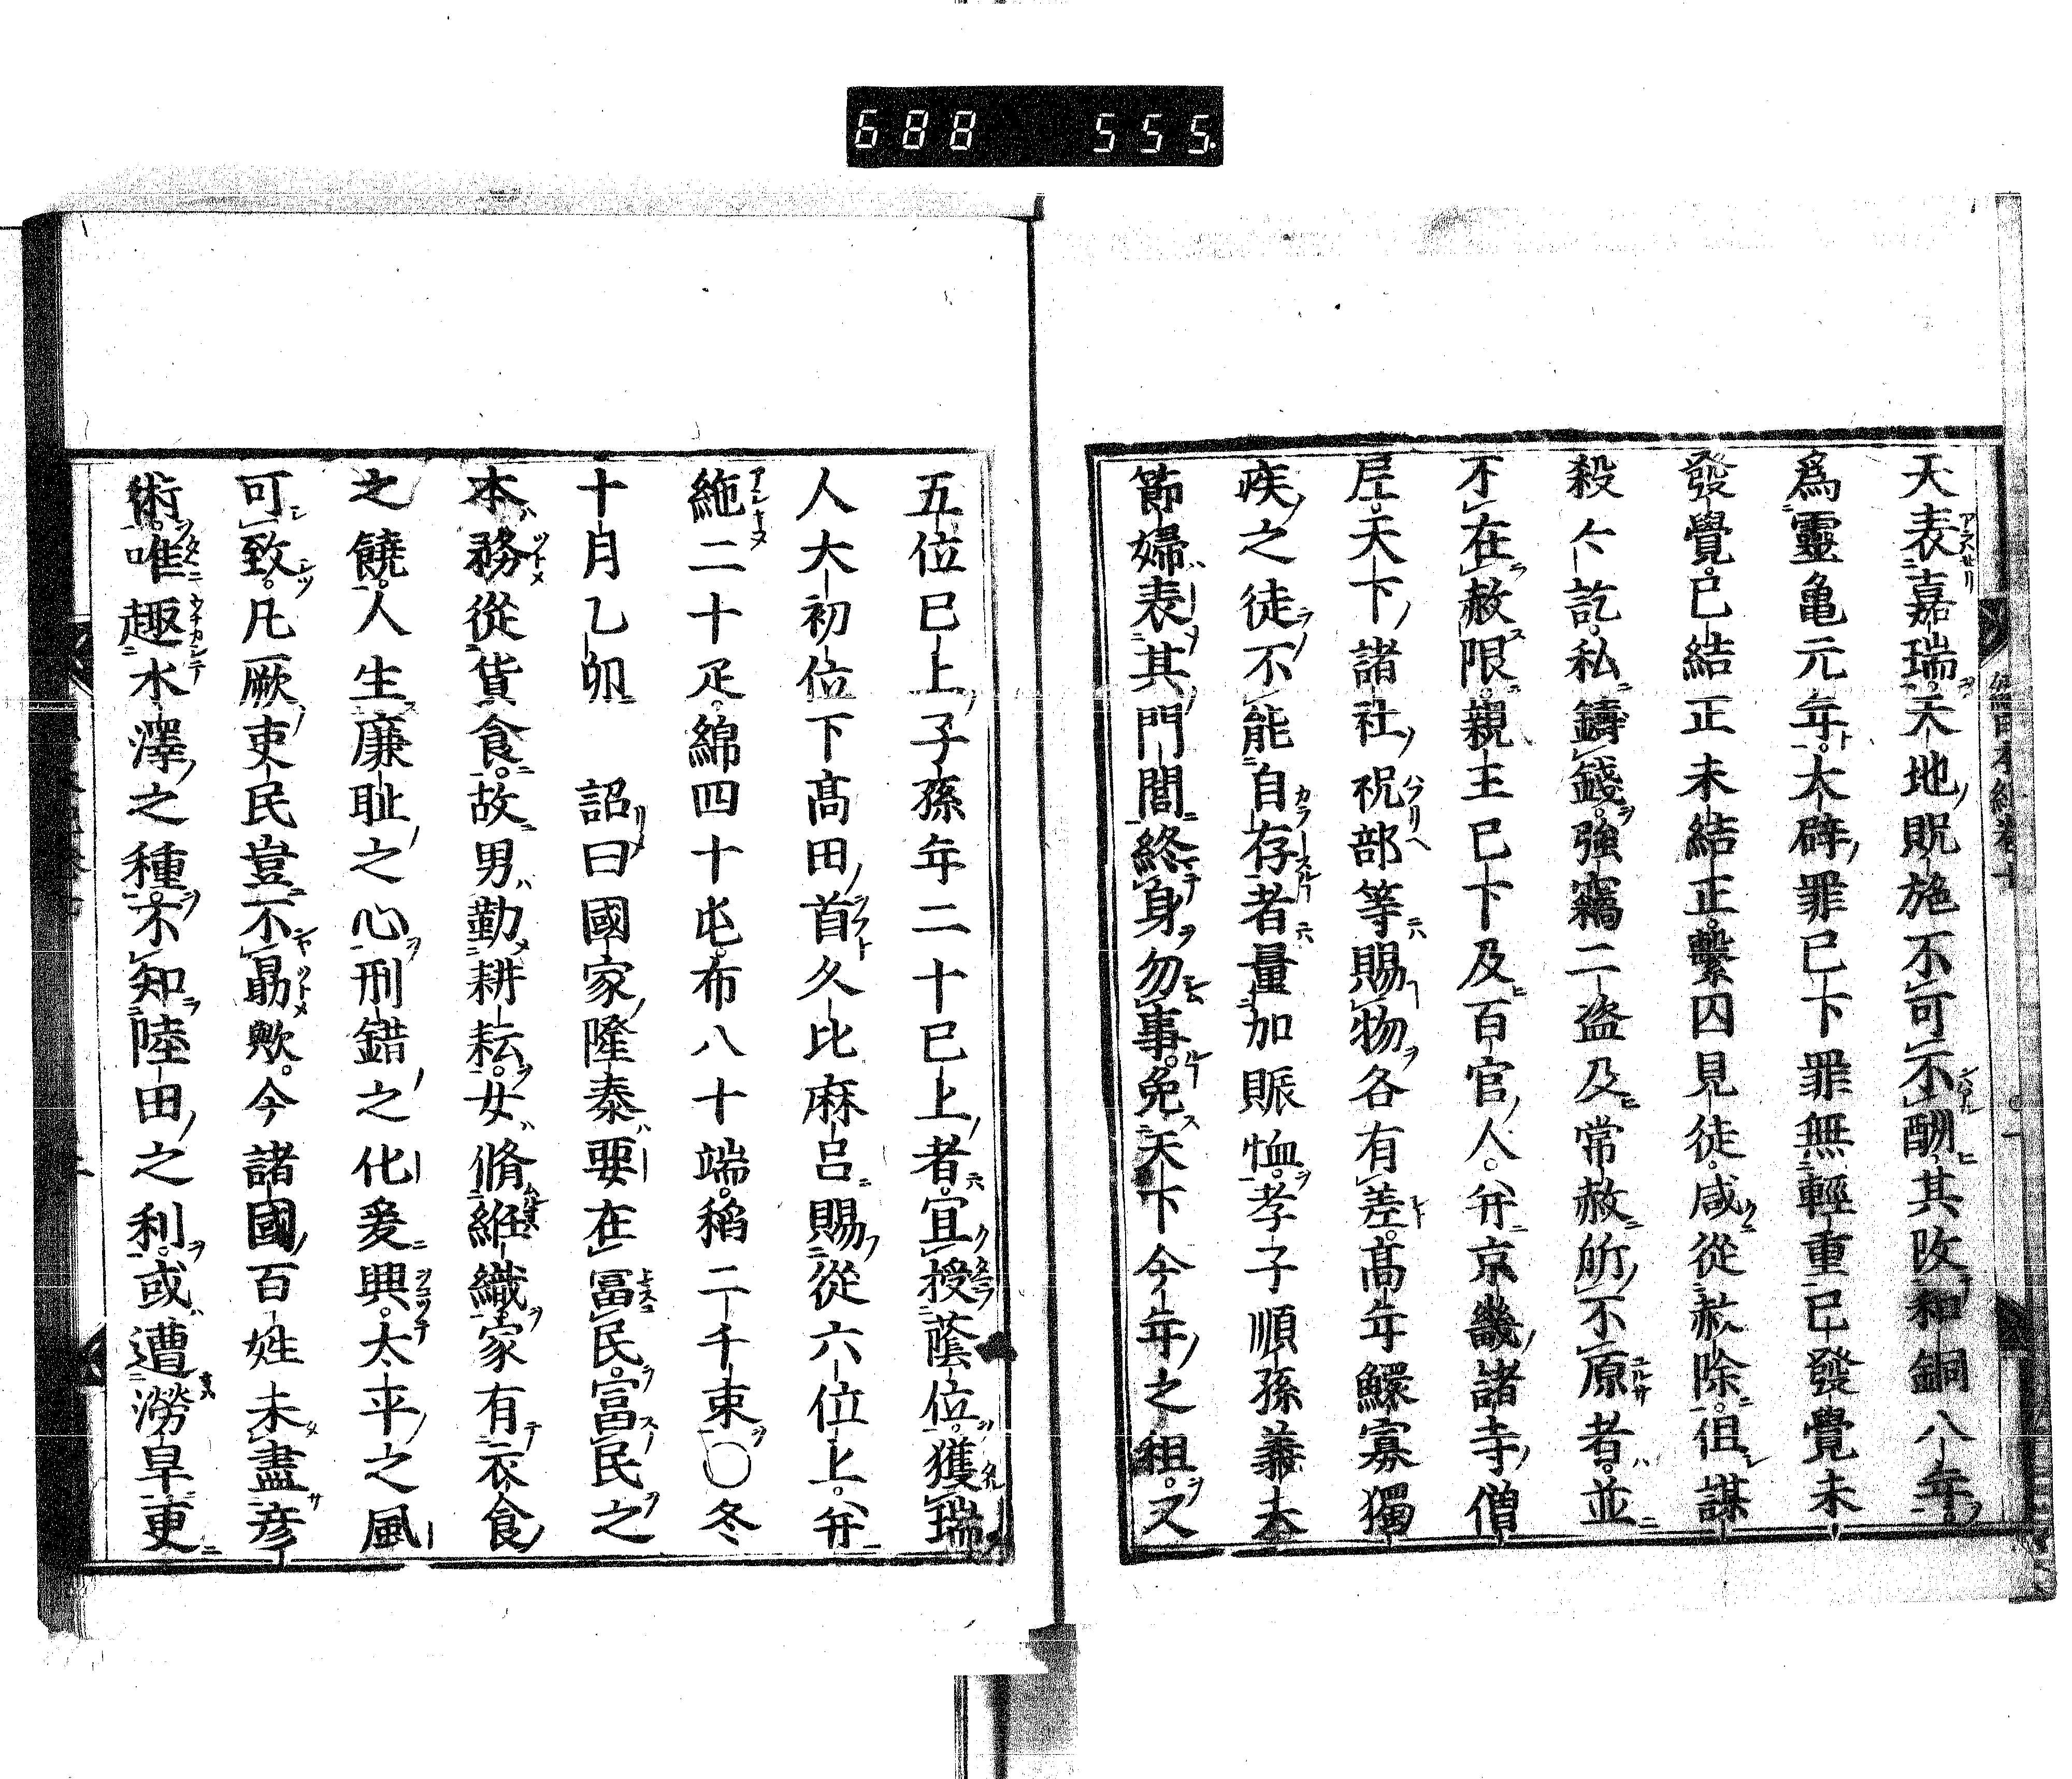 688 555
天表嘉瑞。天地貺施不可不酬其改和銅八年
爲靈亀元年。大辟罪已下罪無輕重已發覺未
發覺。已結正未結正。繫囚見徒。咸從赦除。但謀
殺人訖。私鑄錢。強竊二盗及常赦所不原者。並
不在赦限。親王已下及百官人。并京畿諸寺僧
尼。天下諸社祝部等賜物各有差。高年鰥寡獨
疾之徒不能自存者量加賑恤。孝子順孫義夫
節婦表其門閭終身勿事。免天下今年之租。又
五位已上子孫年二十已上者。宜授蔭位。獲瑞
人大初位下髙田首久比麻呂賜從六位上。并
絁二十疋。綿四十屯。布八十端。稻二千束。〇冬
十月乙卯 詔曰國家隆泰要在冨民。富民之
本務從貨食。故男勤耕耘。女脩維織。家有衣食
之饒。人生廉耻之心刑錯之化爰興。太平之風
可致。凡厥吏民豈不勗歟。今諸國百姓未盡彦
術。唯趣水澤之種。不知陸田之利。或遭澇旱更